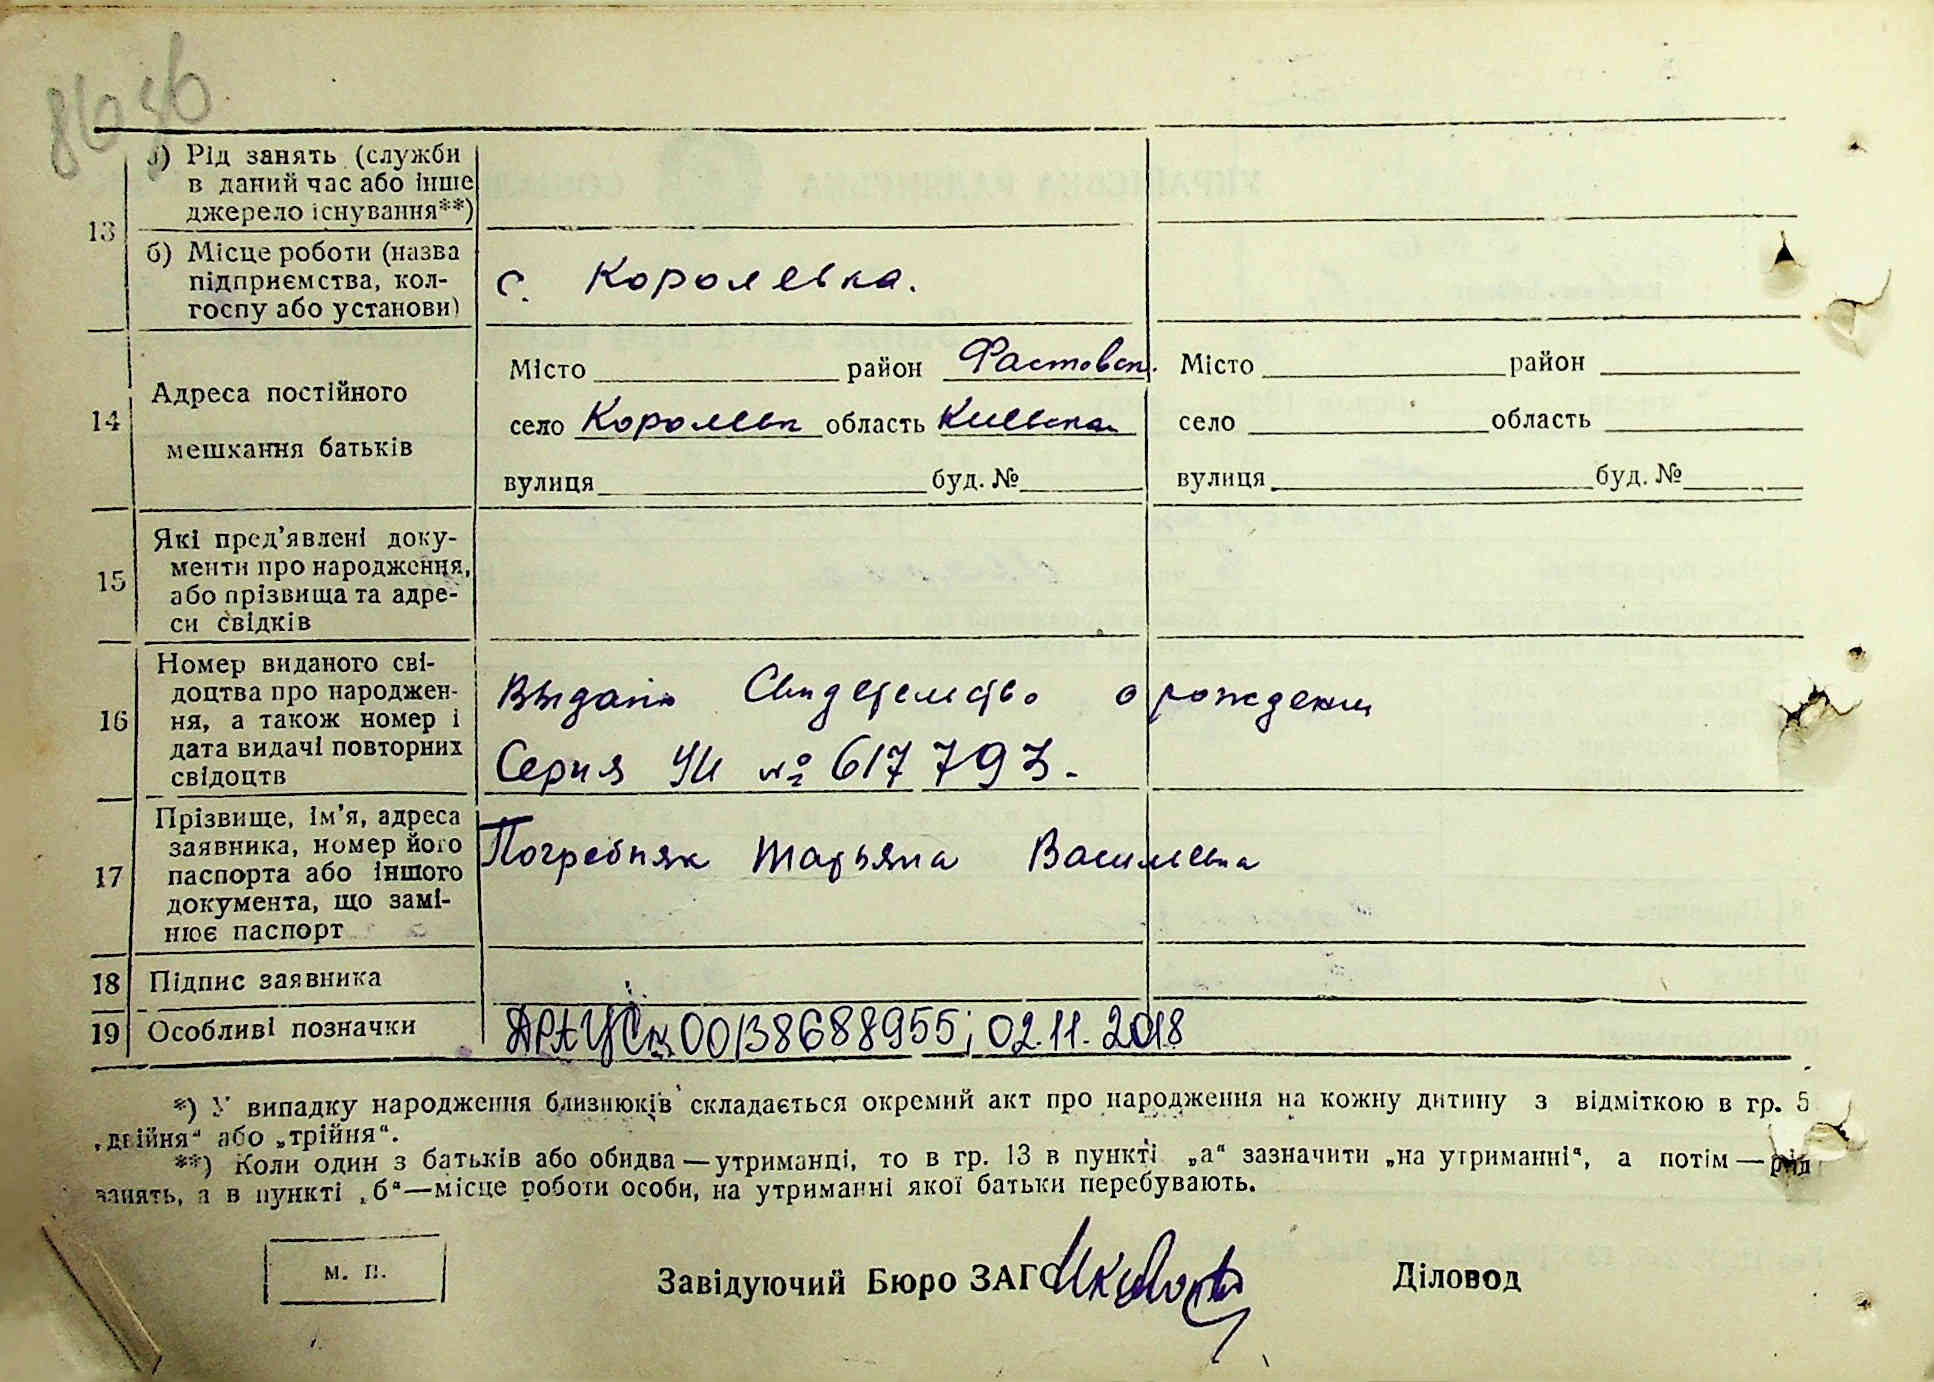 13
а) Рід занять (служби
в даний час або інше
джерело існування**)
б) Місце роботи (назва
підприємства, кол-
госпу або установи)
с. Королевка.
14
Адреса постійного
мешкання батьків
Місто район Фастовск.
село Королевк область Киевская
вулиця буд. №
Місто район
село область
вулиця буд. №
15
Які пред'явлені доку-
менти про народження,
або прізвища та адре-
си свідків
16
Номер виданого сві-
доцтва про народжен-
ня, а також номер і
дата видачі повторних
свідоцтв
Выдано Свидетельство о рождении
Серия УИ № 617793.
17
Прізвище, ім'я, адреса
заявника, номер його
паспорта або іншого
документа, що замі-
нює паспорт
Погребняк Татьяна Васильевна
18 Підпис заявника
19 Особливі позначки
00138688955; 02.11.2018
*) У випадку народження близнюків складається окремий акт про народження на кожну дитину з відміткою в гр. 5
„двійня“ або „трійня“.
**) Коли один з батьків або обидва—утриманці, то в гр. 13 в пункті „а“ зазначити „на утриманні“, а потім—рід
занять, а в пункті „б“—місце роботи особи, на утриманні якої батьки перебувають.
м. п.
Завідуючий Бюро ЗАГС
Діловод